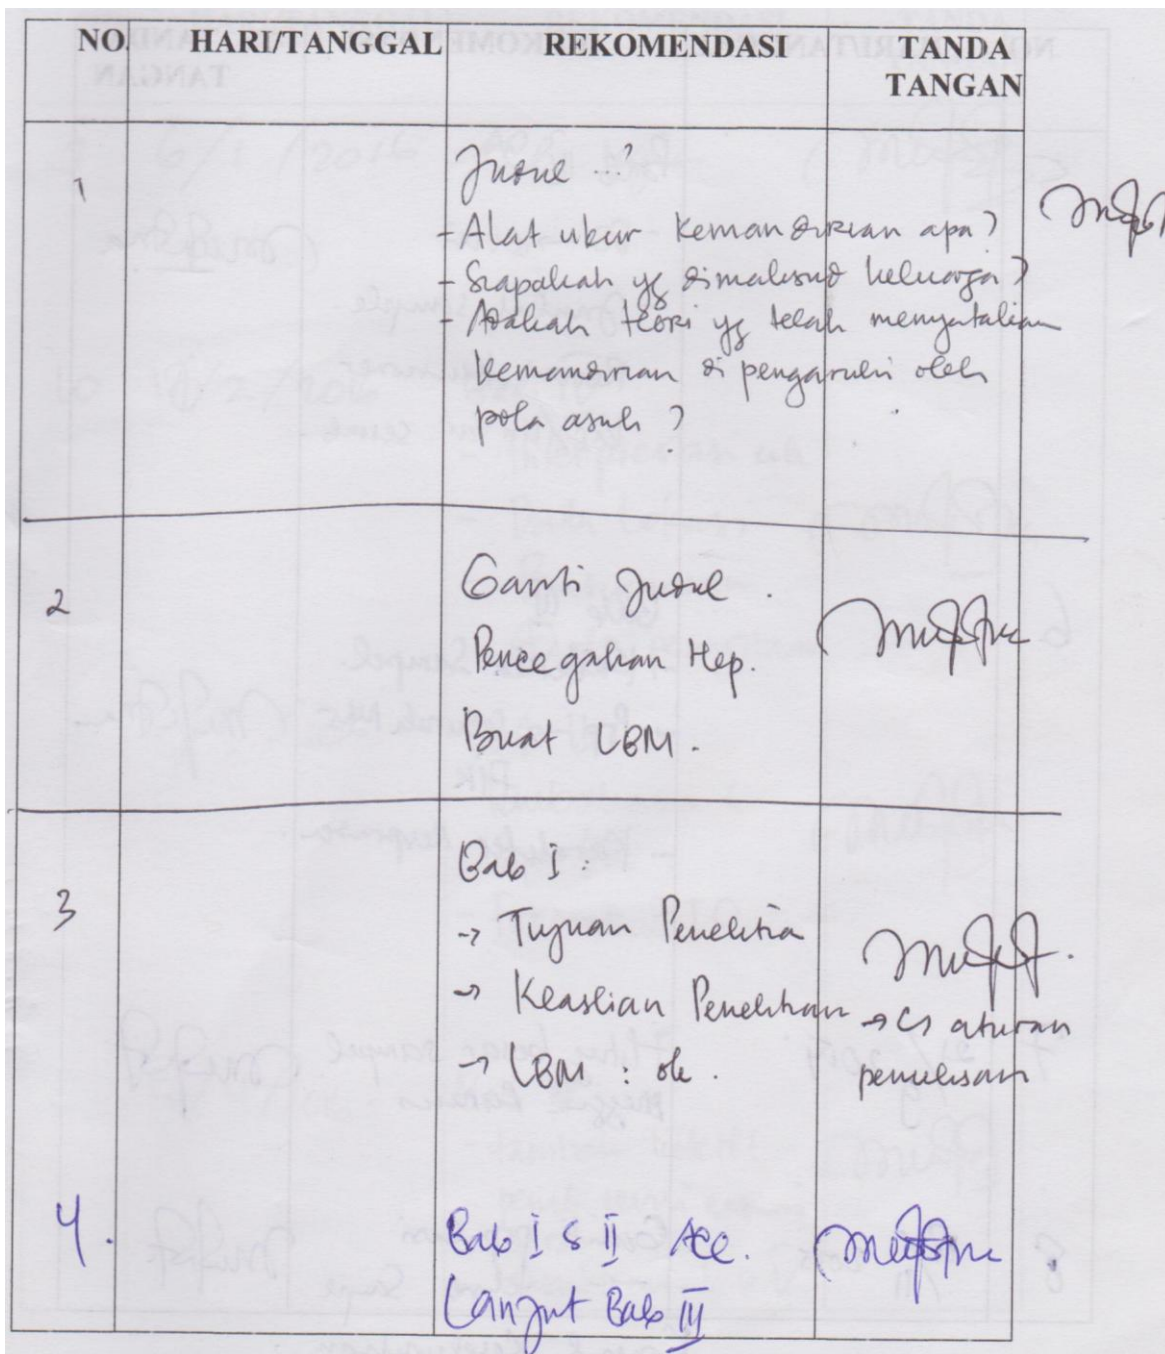 NO. HARI/TANGGAL REKOMENDASI TANDA TANGAN
1 Judul ...?
- Alat ukur kemandirian apa?
- Siapakah yg dimaksud keluarga?
- Adakah teori yg telah menyatakan
kemandirian di pengaruhi oleh
pola asuh?
2 Ganti Judul.
Pencegahan Hep.
Buat LBM.
3 Bab I:
→ Tujuan Penelitia
→ Keaslian Penelitian → aturan
penulisan
→ LBM : ok.
4. Bab I & II Acc.
Lanjut Bab III